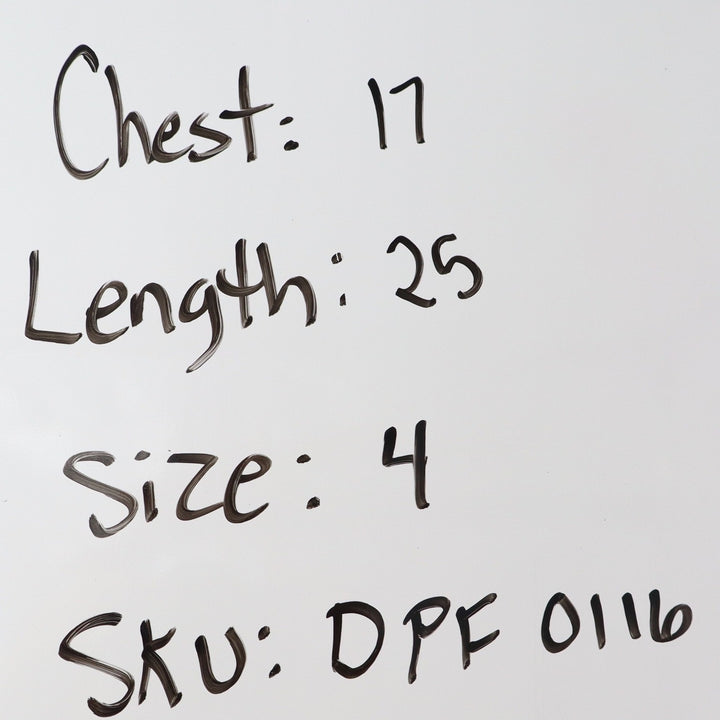 Chest: 17
Length: 25
Size: 4
SKU: DPF 0116